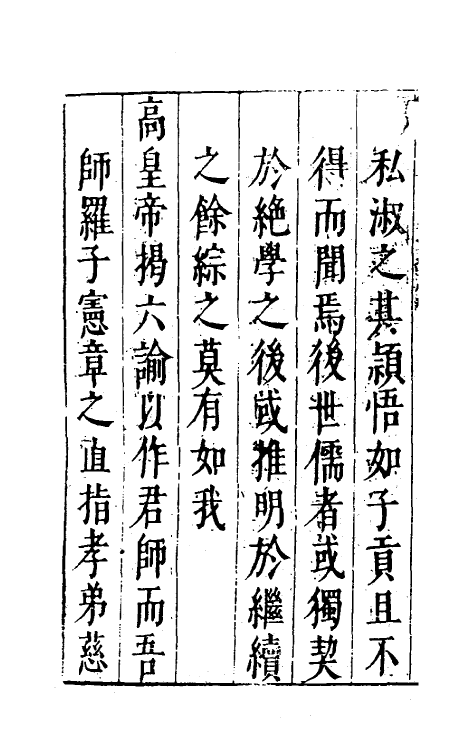 私淑之其頴悟如子貢且不
得而聞焉後世儒者或獨契
於絶學之後或推明於繼續
之餘綜之莫有如我
高皇帝揭六諭以作君師而吾
師羅子憲章之直指孝弟慈